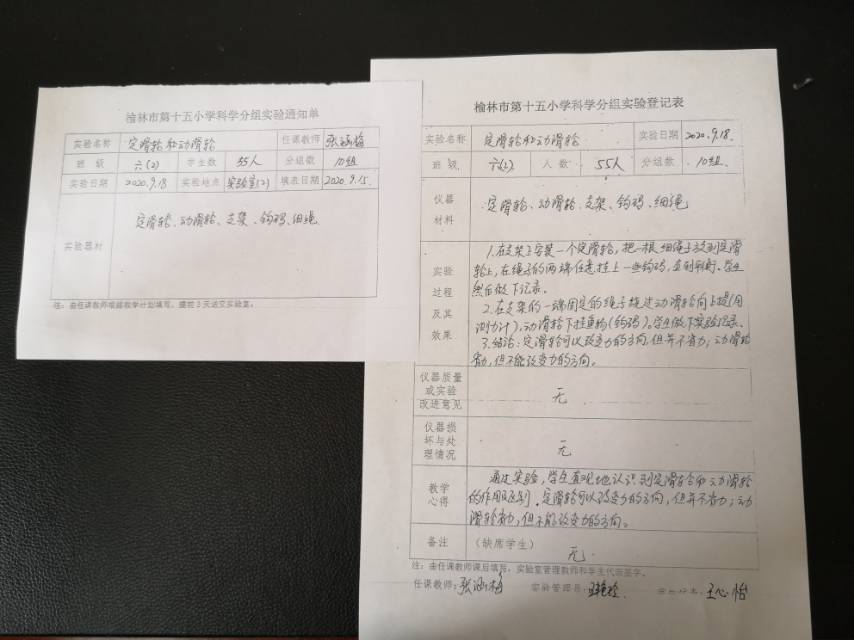 榆林市第十五小学科学分组实验通知单
实验名称 定滑轮和动滑轮 任课教师 张涵梅
班 级 六(2) 学生数 55人 分组数 10组
实验日期 2020.9.18 实验地点 实验室(2) 填表日期 2020.9.15
实验器材 定滑轮、动滑轮、支架、钩码、细绳
注：由任课教师根据教学计划填写，提前3天送交实验室。
榆林市第十五小学科学分组实验登记表
实验名称 定滑轮和动滑轮 实验日期 2020.9.18.
班 级 六(2) 人 数 55人 分组数 10组.
仪器
材料
定滑轮、动滑轮、支架、钩码、细绳
实验
过程
及其
效果
1.在支架上安装一个定滑轮，把一根细绳子放到定滑
轮上，在绳子的两端任意挂上一些钩码，直到平衡。学生
然后做下记录。
2.在支架的一端固定的绳子绕过动滑轮向上提(用
测力计)，动滑轮下挂重物(钩码)，学生做下实验记录。
3.结论：定滑轮可以改变力的方向，但并不省力；动滑轮
省力，但不能改变力的方向。
仪器质量
或实验
改进意见
无
仪器损
坏与处
理情况
无
教学
心得
通过实验，学生直观地认识到定滑轮和动滑轮
的作用及区别。定滑轮可以改变力的方向，但并不省力；动
滑轮省力，但不能改变力的方向。
备注 (缺席学生) 无.
注：由任课教师课后填写，实验室管理教师和学生代表签字。
任课教师：张涵梅 实验管理员： 王心怡